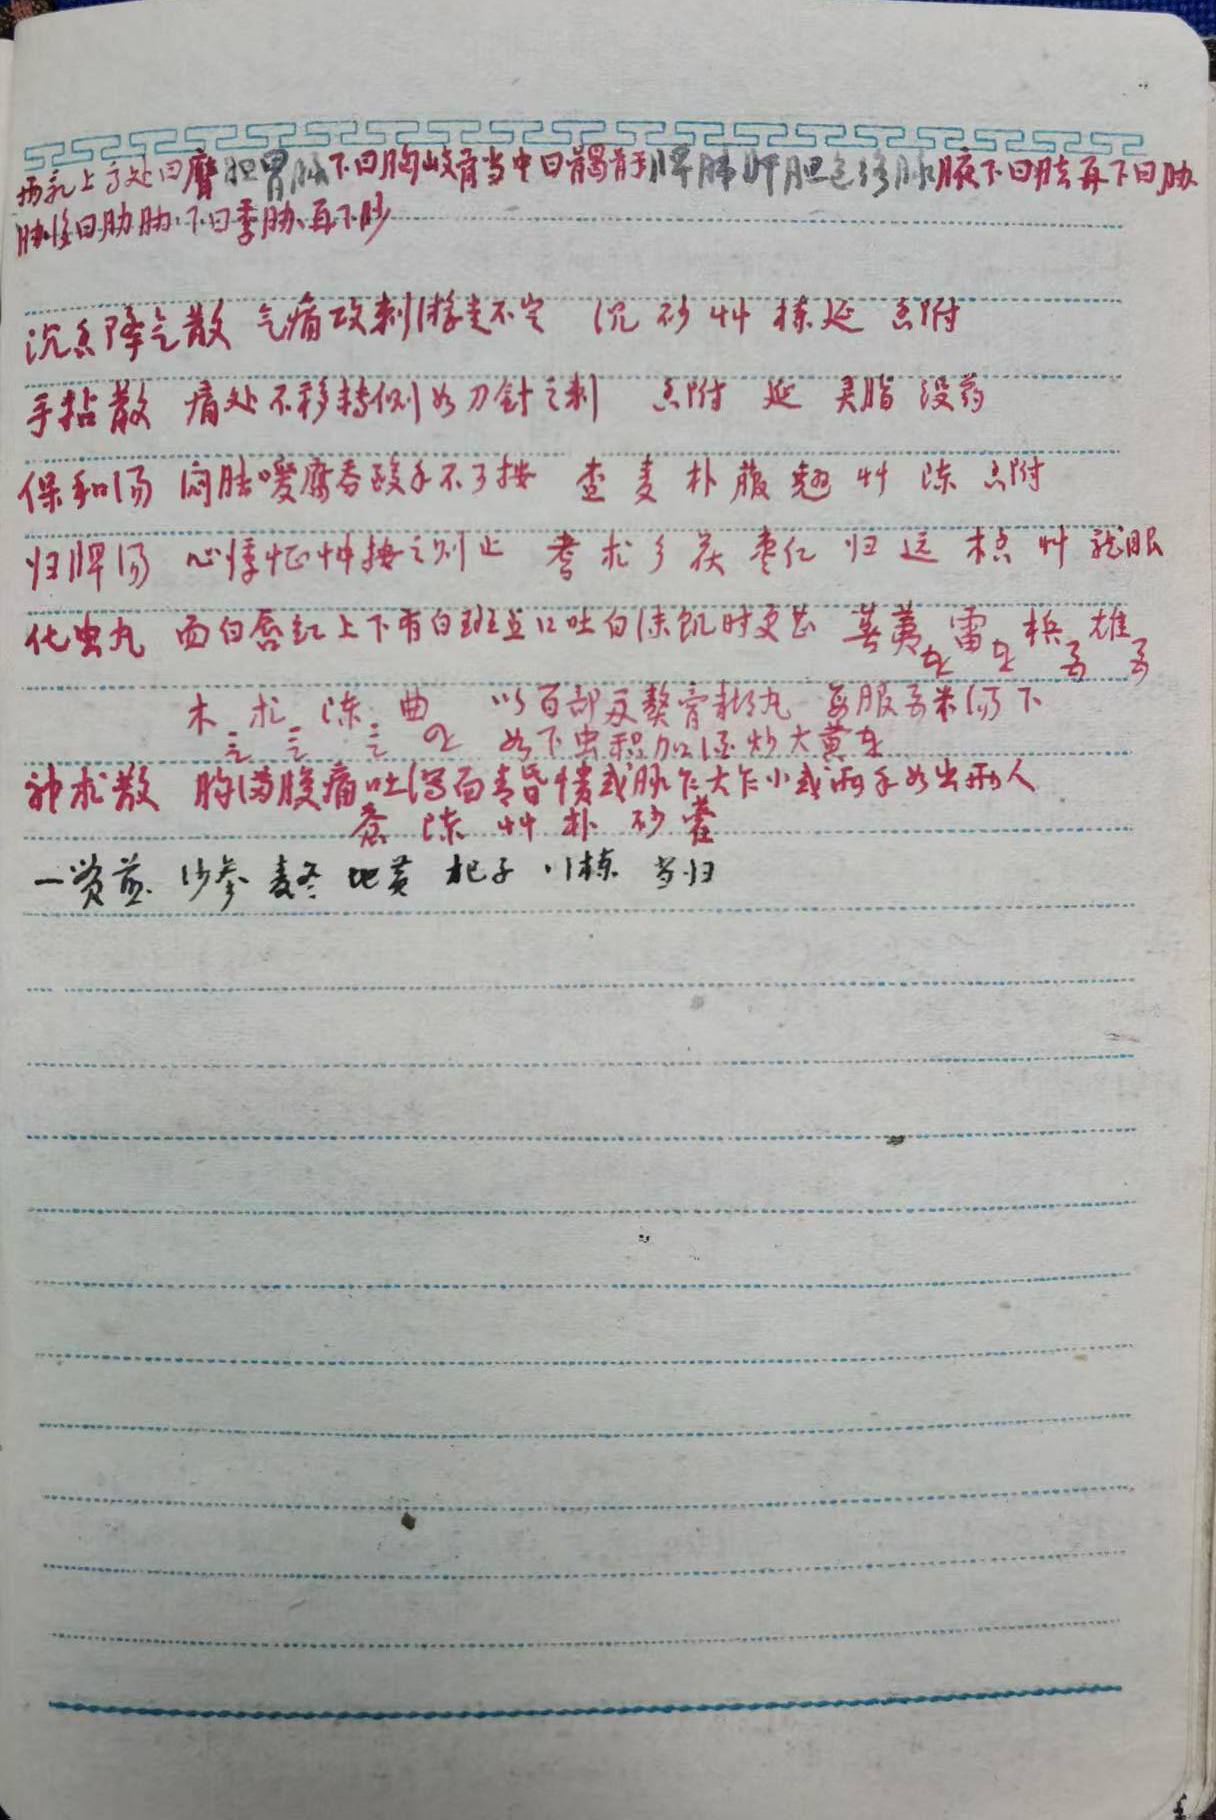 两乳上方处曰膺胆胃脉下曰胸岐骨当中曰𩩲骭脾肺肝胆包络脉腋下曰胠再下曰胁
胁后曰肋肋下曰季胁再下䏚
沉香降气散 气痛攻刺游走不定 沉 砂 艸 楝 延 香附
手拈散 痛处不移转侧如刀针之刺 香附 延 灵脂 没药
保和汤 闷胀嗳腐吞酸手不可按 查 麦 朴 菔 翘 艸 陈 香附
归脾汤 心悸怔忡按之则止 耆 术 参 茯 枣仁 归 远 木香 艸 龙眼
化虫丸 面白唇红上下有白斑点口吐白沫饥时更甚 芜荑 雷 槟 雄
木 术 陈 曲 以百部膏糊丸 每服 米汤下
如下虫积加酒炒大黄
神术散 胸满腹痛吐泻面青昏愦或脉乍大乍小或两手如出两人
苍 陈 艸 朴 砂 藿
一贯煎 沙参 麦冬 地黄 杞子 川楝 当归